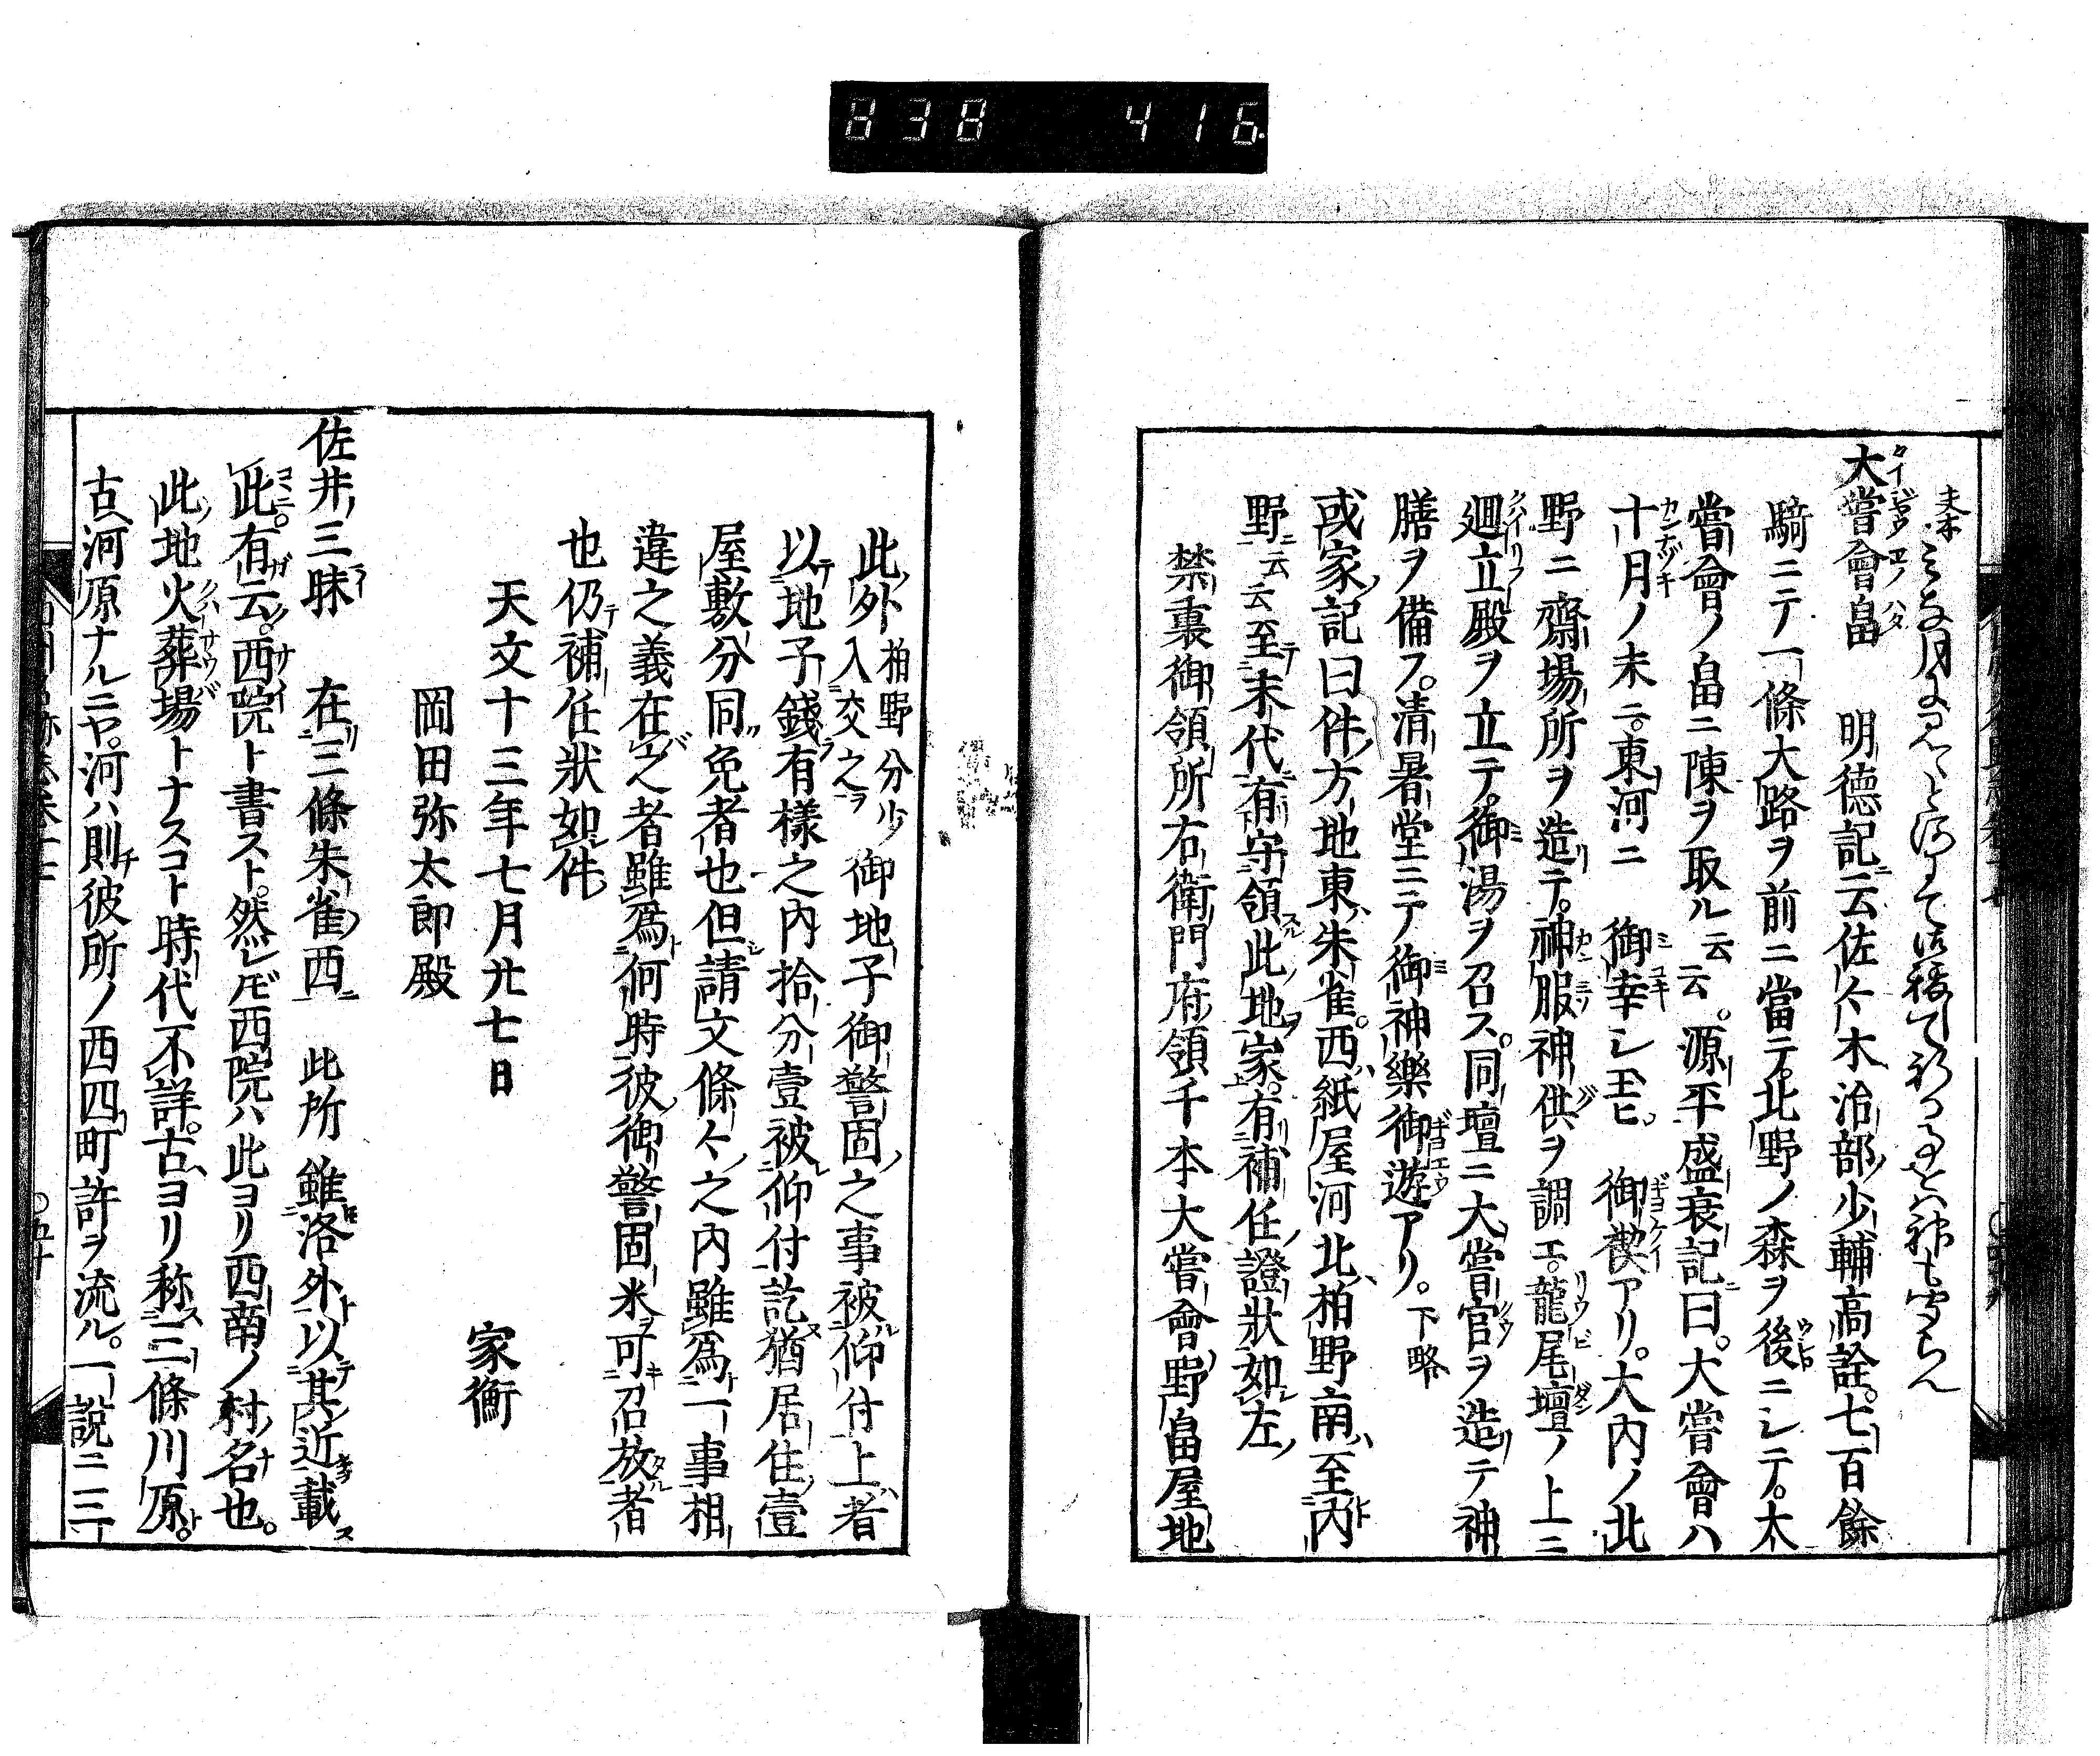 838 416
大嘗會畠 明德記云佐々木治部少輔高詮。七百餘
騎ニテ一條大路ヲ前ニ當テ。北野ノ森ヲ後ニシテ。大
嘗會ノ畠ニ陳ヲ取ル云云。源平盛衰記曰。大嘗會ハ
十月ノ末ニ。東河ニ 御幸シ玉ヒ 御禊アリ。大内ノ北
野ニ齋場所ヲ造テ。神服神供ヲ調エ。龍尾壇ノ上ニ
廻立殿ヲ立テ。御湯ヲ召ス。同壇ニ大嘗宮ヲ造テ神
膳ヲ備フ。清暑堂ニテ御神樂御遊アリ。下略
或家記曰件方地東朱雀。西紙屋河北柏野南至內
野云云至末代有守領此地家。有補任證狀如左
禁裏御領所右衛門府領千本大嘗會野畠屋地
此外柏野分少入交之御地子御警固之事被仰付上者
以地子錢有樣之內拾分壹被仰付訖猶居住壹
屋敷分同免者也但請文條々之內雖爲一事相
違之義在之者雖爲何時彼御警固米可召放者
也仍補任狀如件
天文十三年七月廿七日 家衡
岡田弥太郎殿
佐井三昧 在三條朱雀西 此所雖洛外以其近載
此。有云。西院ト書スト。然レ𪜈西院ハ此ヨリ西南ノ村名也。
此地火葬場トナスコト時代不詳。古ヨリ称三條川原。
古河原ナルニヤ。河ハ則彼所ノ西四町許ヲ流ル。一說ニ三